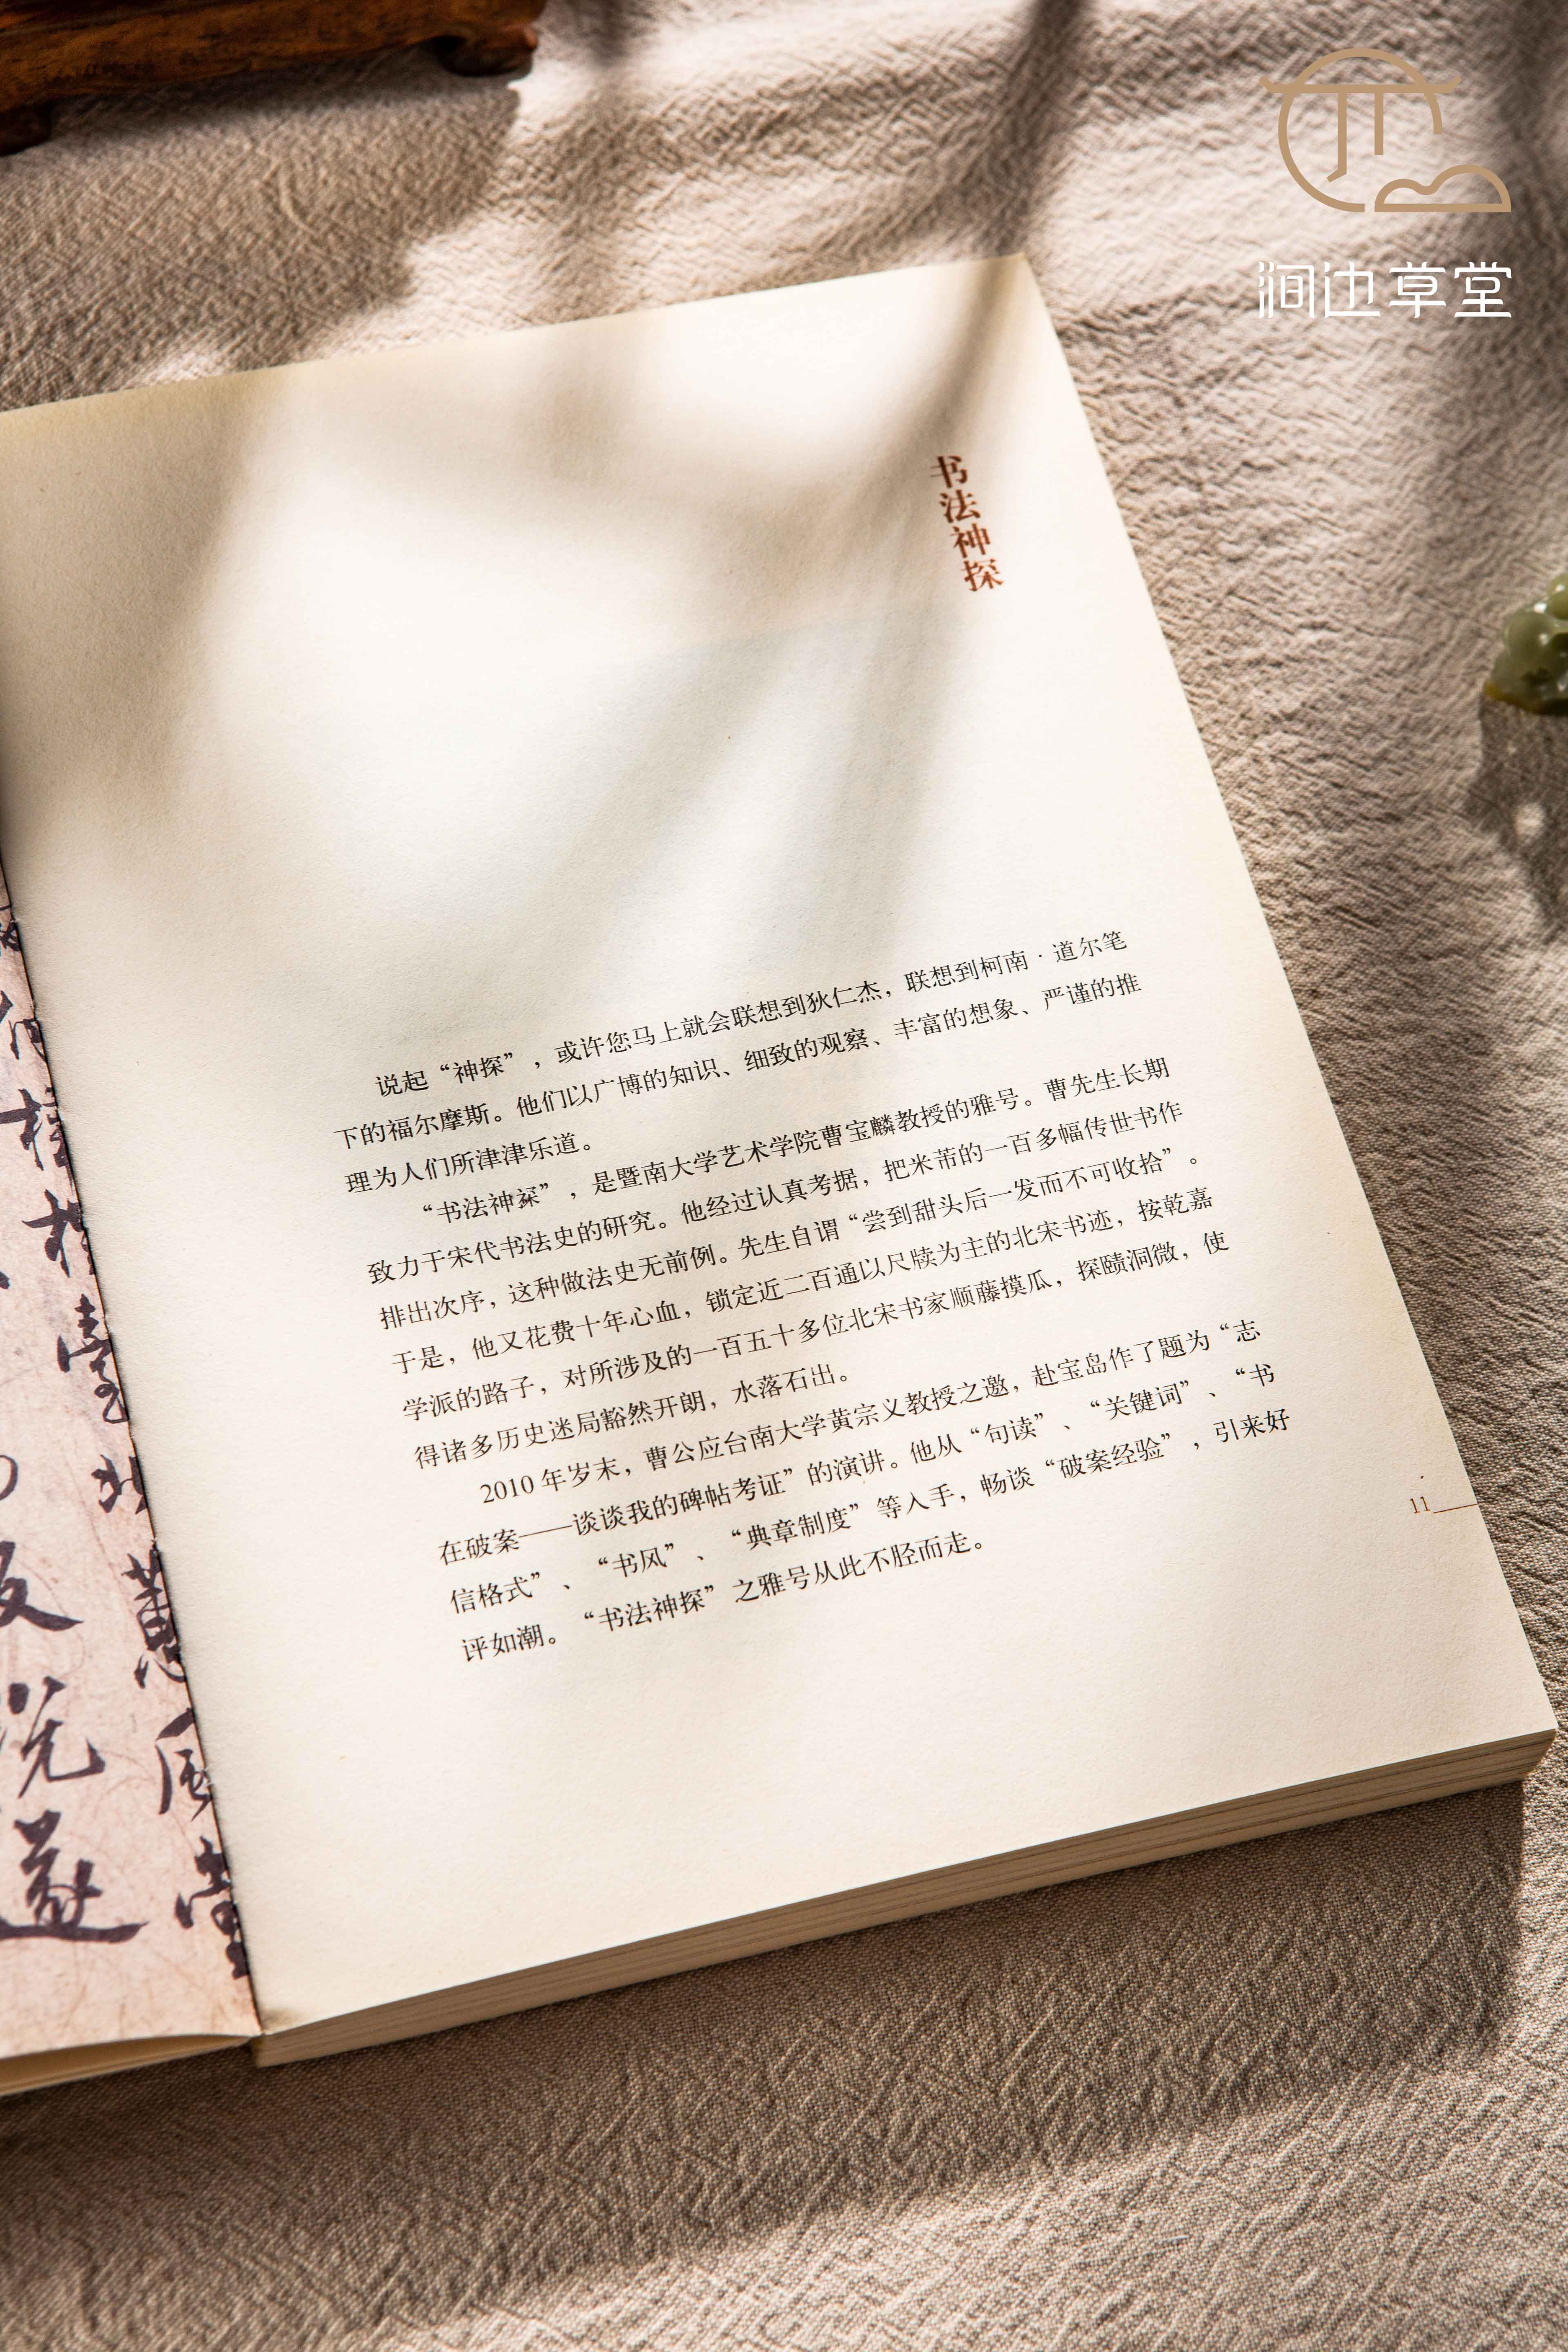 涧边草堂
书法神探
说起“神探”，或许您马上就会联想到狄仁杰，联想到柯南·道尔笔
下的福尔摩斯。他们以广博的知识、细致的观察、丰富的想象、严谨的推
理为人们所津津乐道。
“书法神探”，是暨南大学艺术学院曹宝麟教授的雅号。曹先生长期
致力于宋代书法史的研究。他经过认真考据，把米芾的一百多幅传世书作
排出次序，这种做法史无前例。先生自谓“尝到甜头后一发而不可收拾”。
于是，他又花费十年心血，锁定近二百通以尺牍为主的北宋书迹，按乾嘉
学派的路子，对所涉及的一百五十多位北宋书家顺藤摸瓜，探赜洞微，使
得诸多历史迷局豁然开朗，水落石出。
2010 年岁末，曹公应台南大学黄宗义教授之邀，赴宝岛作了题为“志
在破案——谈谈我的碑帖考证”的演讲。他从“句读”、“关键词”、“书
信格式”、“书风”、“典章制度”等入手，畅谈“破案经验”，引来好
评如潮。“书法神探”之雅号从此不胫而走。
11